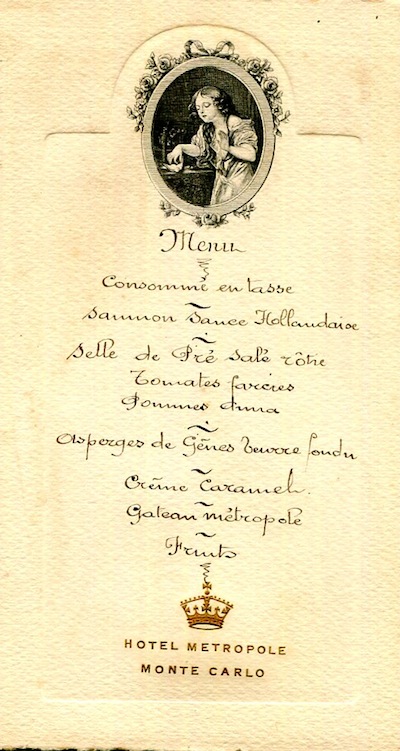 Menu
Consommé en tasse
Saumon Sauce Hollandaise
Selle de Pré Salé rôtie
Tomates farcies
Pommes Anna
Asperges de Gênes beurre fondu
Crème Caramel.
Gateau métropole
Fruits
HOTEL METROPOLE
MONTE CARLO